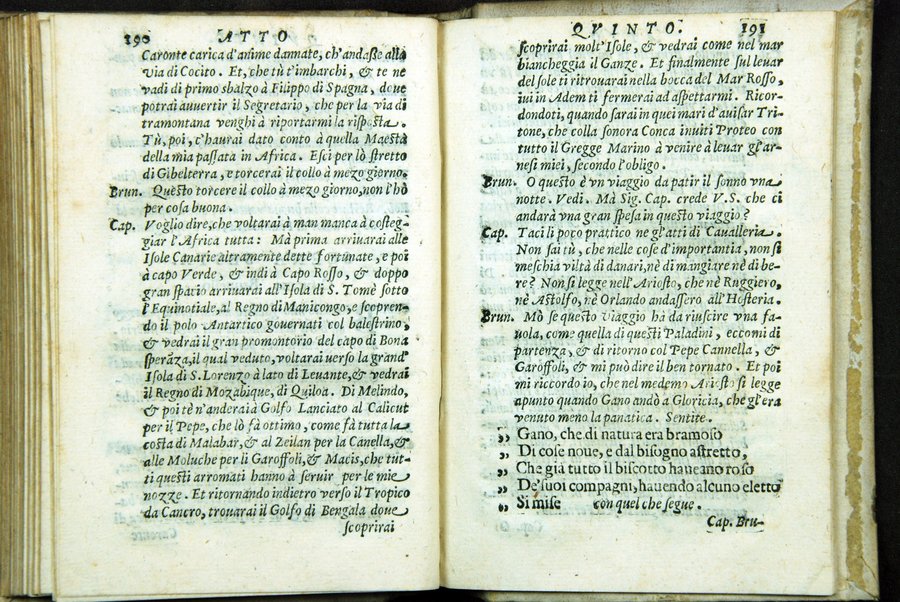 190 ATTO
Caronte carica d'anime dannate, ch'andaße alla
via di Cocito. Et, che tù t'imbarchi, & te ne
vadi di primo sbalzo à Filippo di Spagna, doue
potrai auuertir il Segretario, che per la via di
tramontana venghi à riportarmi la risposta.
Tù, poi, t'haurai dato conto à quella Maestà
della mia passata in Africa. Esci per lò stretto
di Gibelterra, e torcerai il collo à mezo giorno.
Brun. Questo torcere il collo à mezo giorno, non l'hò
per cosa buona.
Cap. Voglio dire, che voltarai à man manca à costeg-
giar l'Africa tutta: Mà prima arriuarai alle
Isole Canarie altramente dette fortunate, e poi
à capo Verde, & indi à Capo Rosso, & doppo
gran spatio arriuarai all'Isola di S. Tomè sotto
l'Equinotiale, al Regno di Manicongo, e scopren-
do il polo Antartico gouernati col balestrino,
& vedrai il gran promontorio del capo di Bona
sperãza, il qual veduto, voltarai verso la grand'
Isola di S. Lorenzo à lato di Leuante, & vedrai
il Regno di Mozãbique, di Quiloa. Di Melindo,
& poi tè n'anderai à Golfo Lanciato al Calicut
per il Pepe, che lò fà ottimo, come fà tutta la
costa di Malabar, & al Zeilan per la Canella, &
alle Moluche per li Garoffoli, & Macis, che tut-
ti questi arromati hanno à seruir per le mie
nozze. Et ritornando indietro verso il Tropico
da Cancro, trouarai il Golfo di Bengala doue
scoprirai
QVINTO. 191
scoprirai molt'Isole, & vedrai come nel mar
biancheggia il Ganze. Et finalmente sul leuar
del sole ti ritrouarai nella bocca del Mar Rosso,
iui in Adem ti fermerai ad aspettarmi. Ricor-
dondoti, quando sarai in quei mari d'auisar Tri-
tone, che colla sonora Conca inuiti Proteo con
tutto il Gregge Marino à venire à leuar gl'ar-
nesi miei, secondo l'obligo.
Brun. O questo è vn viaggio da patir il sonno vna
notte. Vedi. Mà Sig. Cap. crede V.S. che ci
andarà vna gran spesa in questo viaggio?
Cap. Taci li poco prattico ne gl'atti di Caualleria.
Non sai tù, che nelle cose d'importantia, non si
meschia viltà di danari, nè di mangiare nè di be-
re? Non si legge nell'Ariosto, che nè Ruggiero,
nè Astolfo, nè Orlando andassero all'Hosteria.
Brun. Mò se questo viaggio hà da riuscire vna fa-
uola, come quella di questi Paladini, eccomi di
partenza, & di ritorno col Pepe Cannella, &
Garoffoli, & mi può dire il ben tornato. Et poi
mi riccordo io, che nel medemo Ariosto si legge
apunto quando Gano andò a Gloricia, che gl'era
venuto meno la panatica. Sentite.
„ Gano, che di natura era bramoso
„ Di cose noue, e dal bisogno astretto,
„ Che già tutto il biscotto haueano roso
„ De' suoi compagni, hauendo alcuno eletto
„ Si mise con quel che segue.
Cap. Bru-